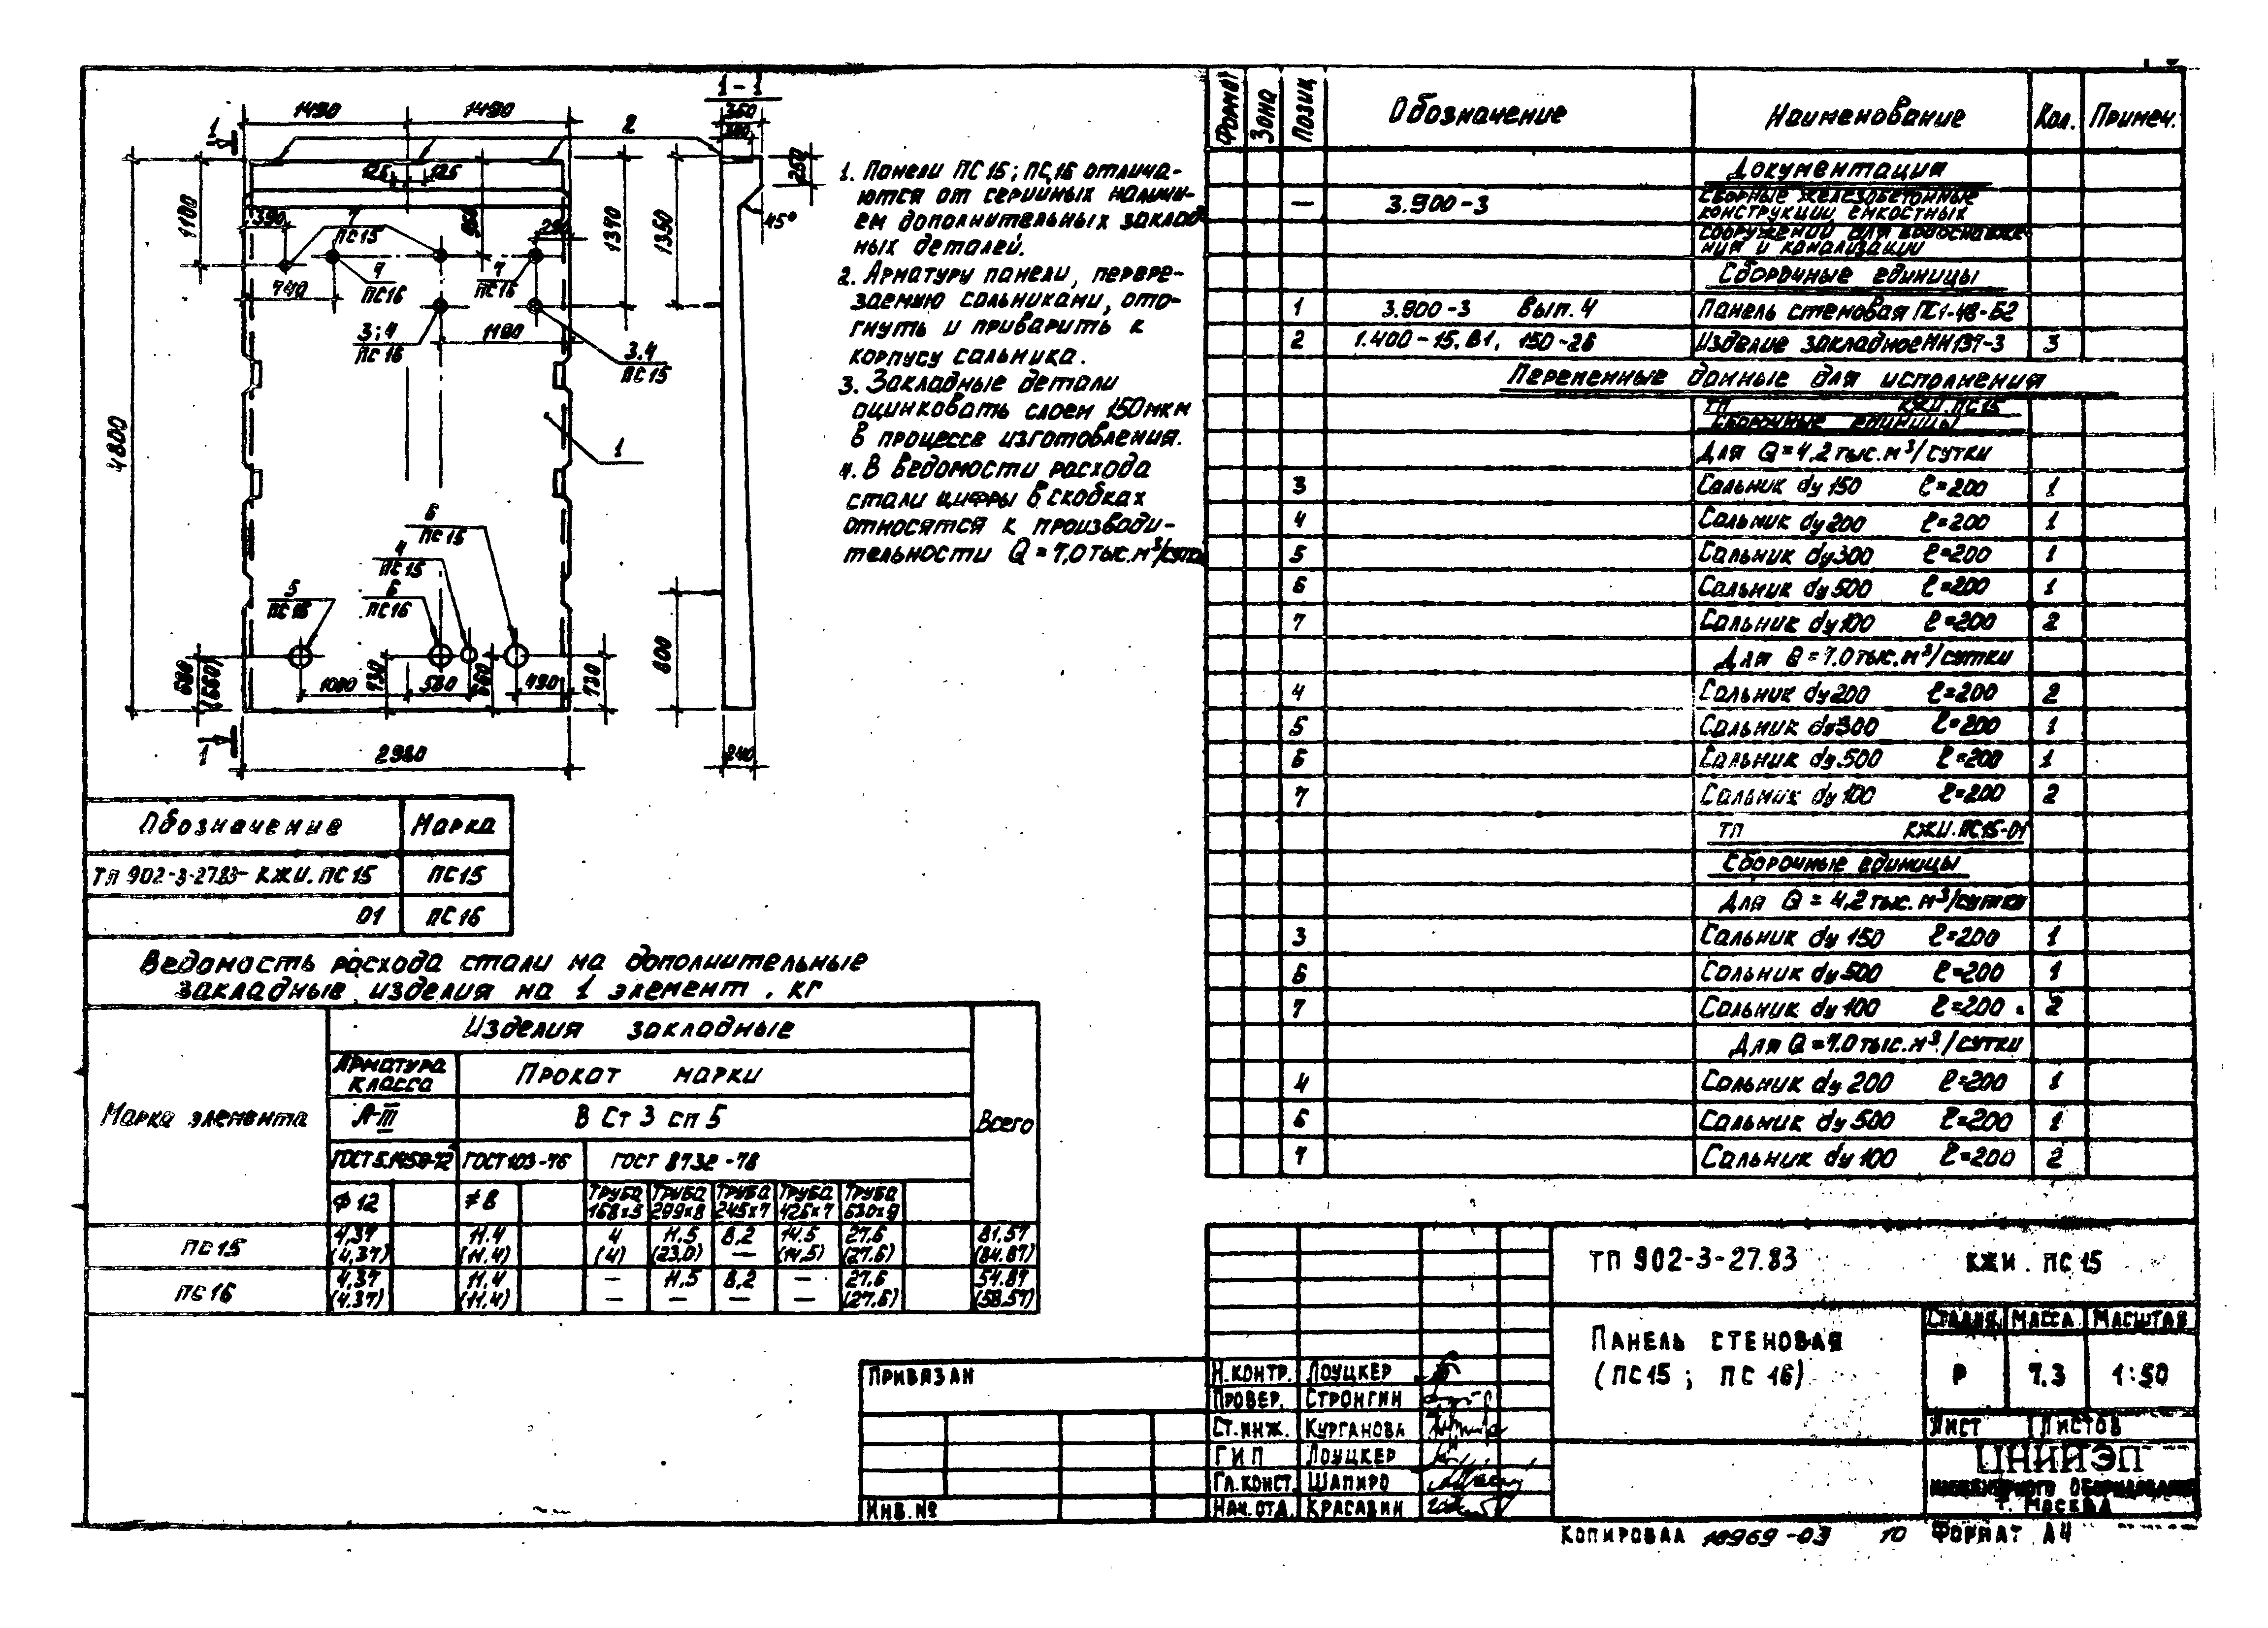 1490
1490
2
1
126
126
1100
390
7
ПС15
290
7
ПС16
7
ПС16
740
3;4
ПС16
1180
3.4
ПС15
1390
1360
4800
1
6
ПС15
4
ПС15
6
ПС16
5
ПС15
680
(660)
1080
730
580
490
730
1
2980
1-1
350
300
250
45°
600
240
1. Панели ПС15; ПС16 отлича-
ются от серийных наличи-
ем дополнительных заклад-
ных деталей.
2. Арматуру панели, перере-
заемую сальниками, ото-
гнуть и приварить к
корпусу сальника.
3. Закладные детали
оцинковать слоем 150мкм
в процессе изготовления.
4. В ведомости расхода
стали цифры в скобках
относятся к производи-
тельности Q = 7,0 тыс.м³/сутки
Обозначение Марка
ТП 902-3-27.83- КЖИ.ПС15 ПС15
01 ПС16
Ведомость расхода стали на дополнительные
закладные изделия на 1 элемент, кг
Марка элемента Изделия закладные Всего
Арматура класса Прокат марки
А-III В Ст 3 сп 5
ГОСТ 5.1459-72 ГОСТ 103-76 ГОСТ 8732-78
Ф12 ≠8 Труба 168х5 Труба 299х8 Труба 245х7 Труба 426х7 Труба 630х9
ПС15 4,37 11.4 4 11.5 8,2 14.5 27.6 81,57
(4,37) (11.4) (4) (23.0) — (14,5) (27.6) (84.87)
ПС16 4,37 11.4 — 11,5 8,2 — 27.6
(4.37) (11.4) — — — — (27.6) (58.57)
Формат Зона Позиц Обозначение Наименование Кол. Примеч.
Документация
— 3.900-3 Сборные железобетонные
конструкции емкостных
сооружений для водоснабже-
ния и канализации
Сборочные единицы
1 3.900-3 Вып. 4 Панель стеновая ПС1-48-Б2
2 1.400-15.В1, 150-26 Изделие закладное МН139-3 3
Переменные данные для исполнения
ТП КЖИ.ПС15
Сборочные единицы
Для Q = 4,2 тыс.м³/сутки
3 Сальник dy 150 ℓ=200 1
4 Сальник dy 200 ℓ=200 1
5 Сальник dy 300 ℓ=200 1
6 Сальник dy 500 ℓ=200 1
7 Сальник dy 100 ℓ=200 2
Для Q = 7.0 тыс.м³/сутки
4 Сальник dy 200 ℓ=200 2
5 Сальник dy 300 ℓ=200 1
6 Сальник dy 500 ℓ=200 1
7 Сальник dy 100 ℓ=200 2
ТП КЖИ.ПС15-01
Сборочные единицы
Для Q = 4,2 тыс. м³/сутки
3 Сальник dy 150 ℓ=200 1
6 Сальник dy 500 ℓ=200 1
7 Сальник dy 100 ℓ=200 2
Для Q = 7.0 тыс.м³/сутки
4 Сальник dy 200 ℓ=200 1
6 Сальник dy 500 ℓ=200 1
7 Сальник dy 100 ℓ=200 2
ТП 902-3-27.83 КЖИ. ПС15
Панель стеновая
(ПС15; ПС16)
Стадия Масса Масштаб
Р 7.3 1:50
Лист Листов
ЦНИИЭП
инженерного оборудования
г. Москва
Привязан
Инв.№
Н.контр. Лоуцкер
Провер. Стронгин
Ст.инж. Курганова
ГИП Лоуцкер
Гл.конст. Шапиро
Нач.отд. Красавин
Копировал 18969-03 10 Формат А4